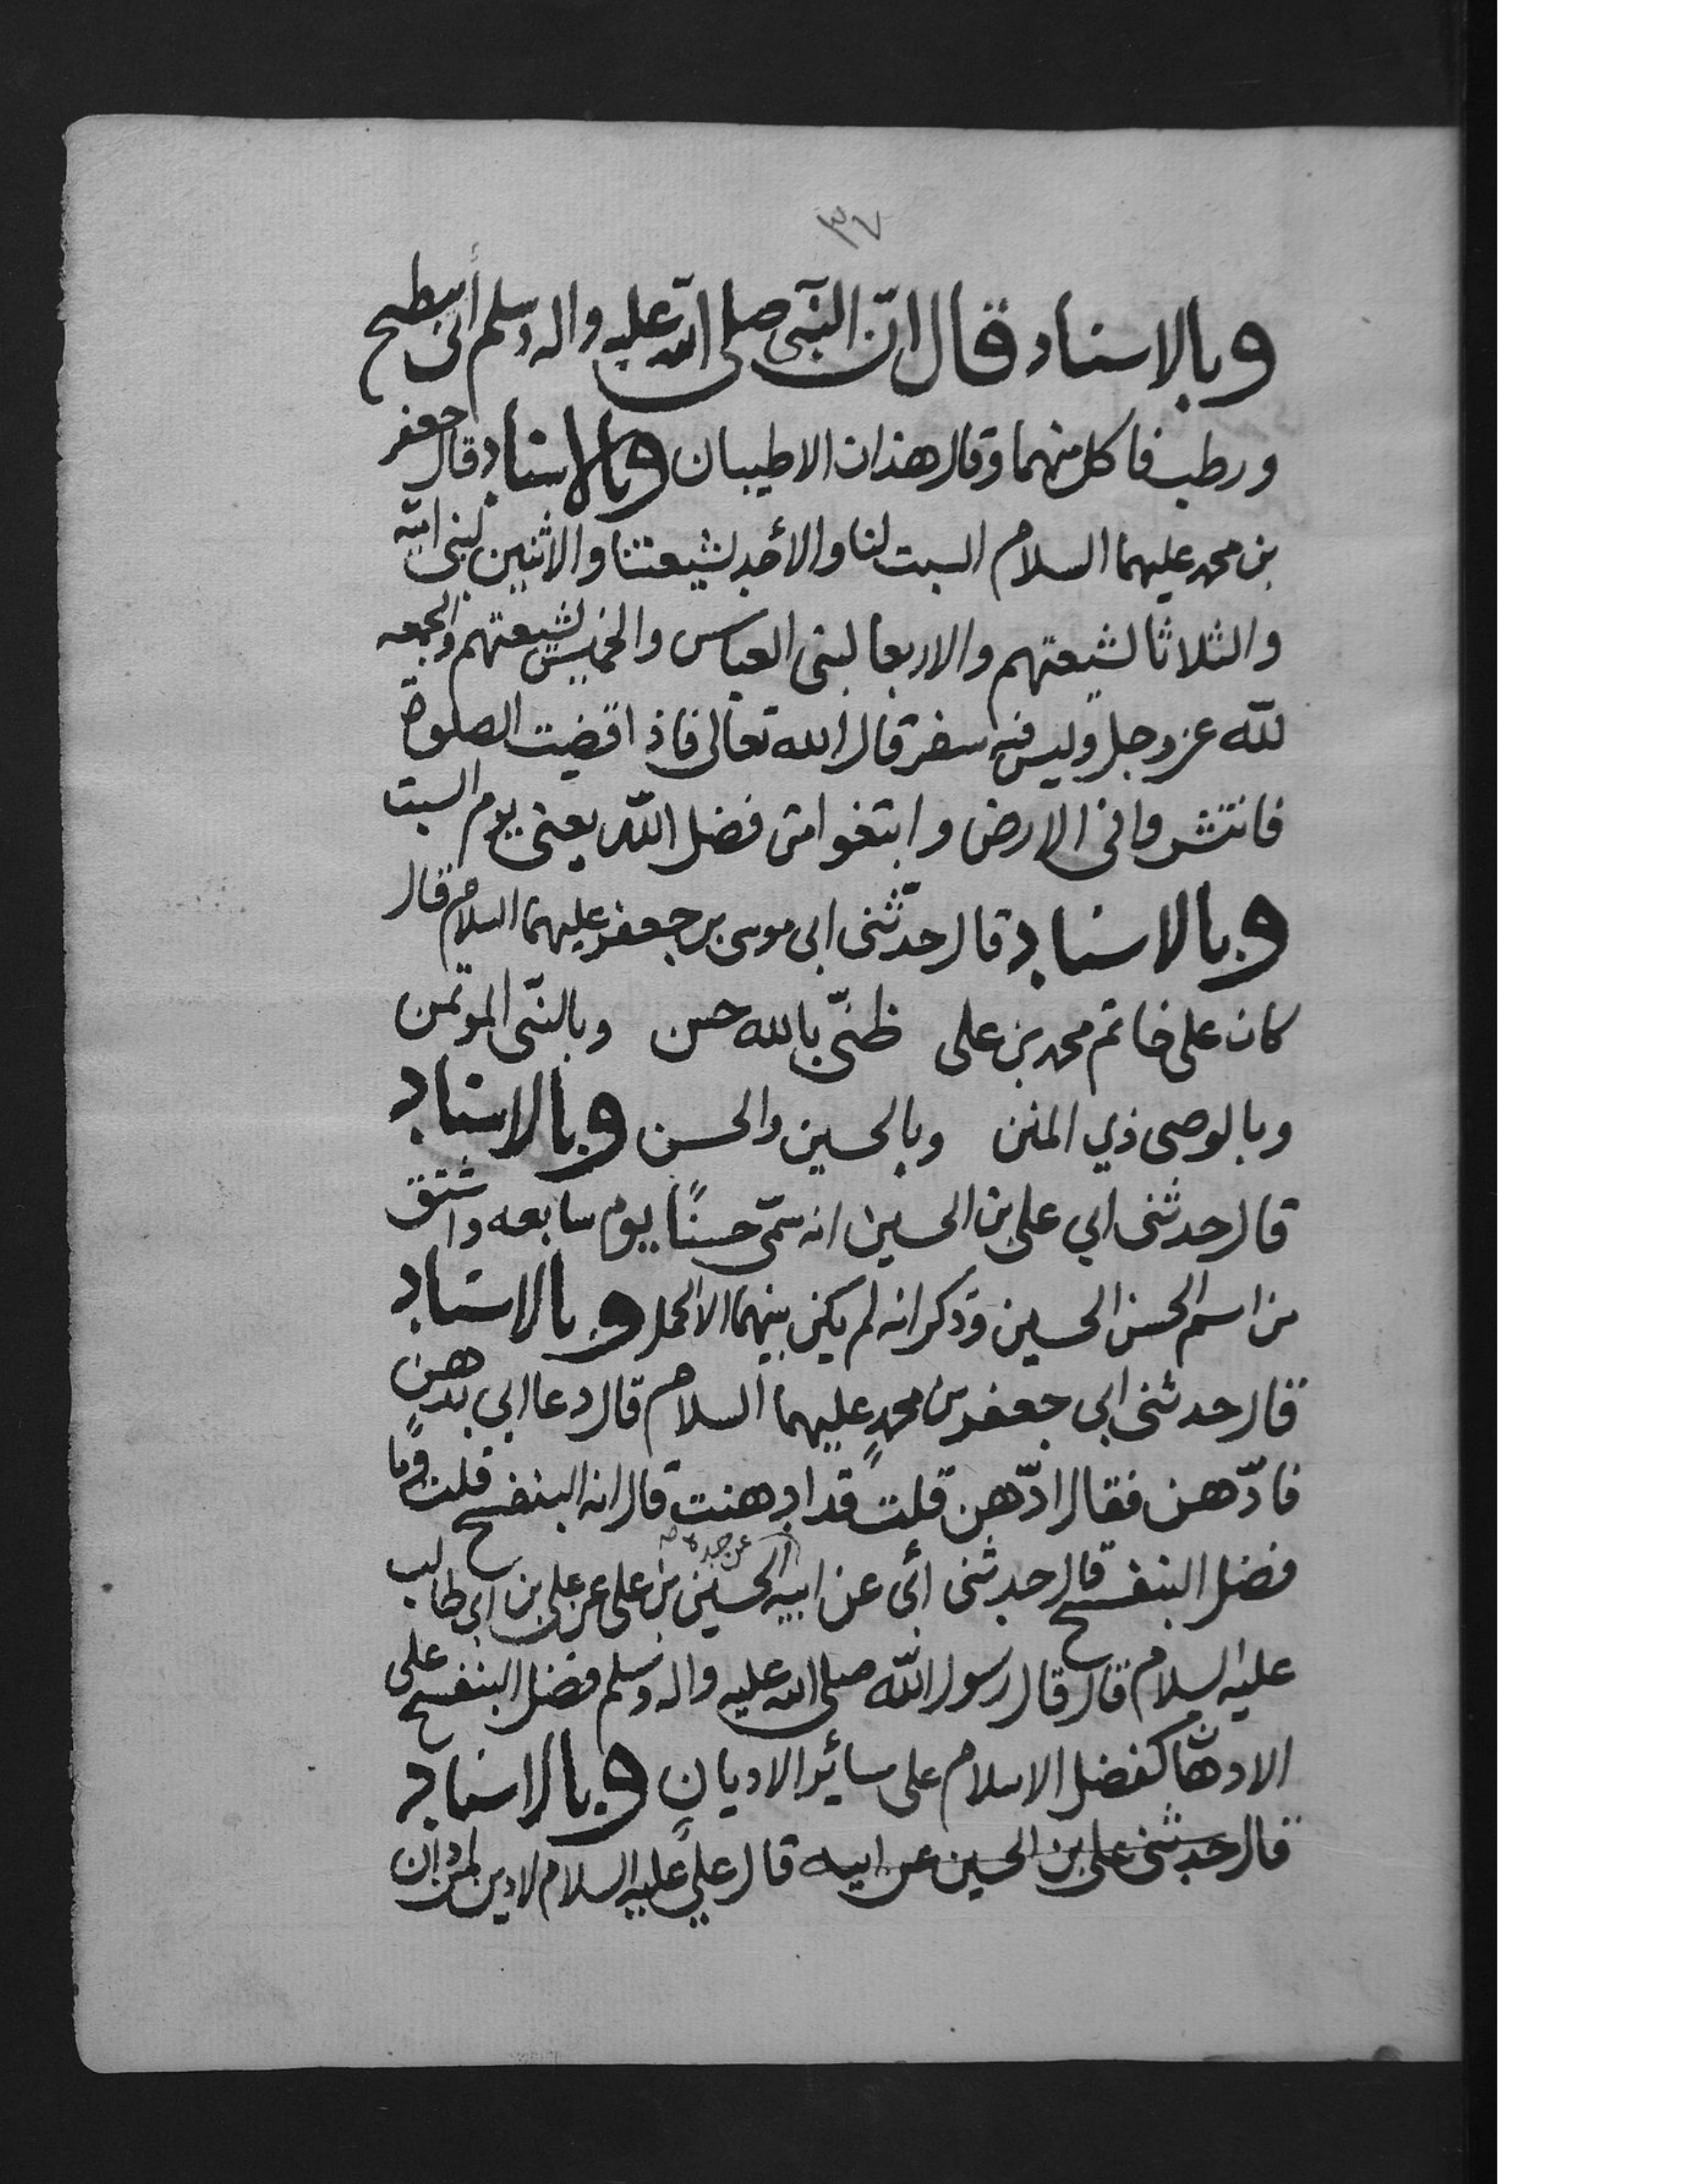 ٣٧
وبالاسناد قال انّ النبّى صلى الله عليه واله وسلم أتى ببطيخ
ورطب فاكل منهما وقال هذان الاطيبان وبالاسناد قال جعفر
بن محمد عليهما السلام السبت لنا والأحد لشيعتنا والاثنين لبنى اميّه
والثلاثا لشيعتهم والاربعا لبنى العباس والخميس لشيعتهم والجمعه
لله عز وجل وليس فيه سفر قال الله تعالى فاذا قضيت الصلوة
فانتشروا فى الارض وابتغوا من فضل الله يعنى يوم السبت
وبالاسناد قال حدّثنى ابى موسى بن جعفر عليهما السلام قال
كان على خاتم محمد بن على ظنّى بالله حسن وبالنبّى الموتمن
وبالوصى ذي المنن وبالحسين والحسن وبالاسناد
قال حدثنى ابي على بن الحسين انه سمّى حسنًا يوم سابعه واشتق
من اسم الحسن الحسين وذكر انه لم يكن بينهما الا الحمل وبالاسناد
قال حدثنى ابى جعفر بن محمدٍ عليهما السلام قال دعا ابى بدهنٍ
فادّهن فقال ادّهن قلت قد ادهنت قال انه البنفسج قلت وما
فضل البنفسج قال حدثنى أبى عن ابيه عن جده الحسين بن على عن على بن ابى طالب
عليه السلام قال قال رسول الله صلى الله عليه واله وسلم فضل البنفسج على
الادهان كفضل الاسلام على سائر الاديان وبالاسناد
قال حدثنى على بن الحسين عن ابيه قال عليّ عليه السلام لا دين لمن دان